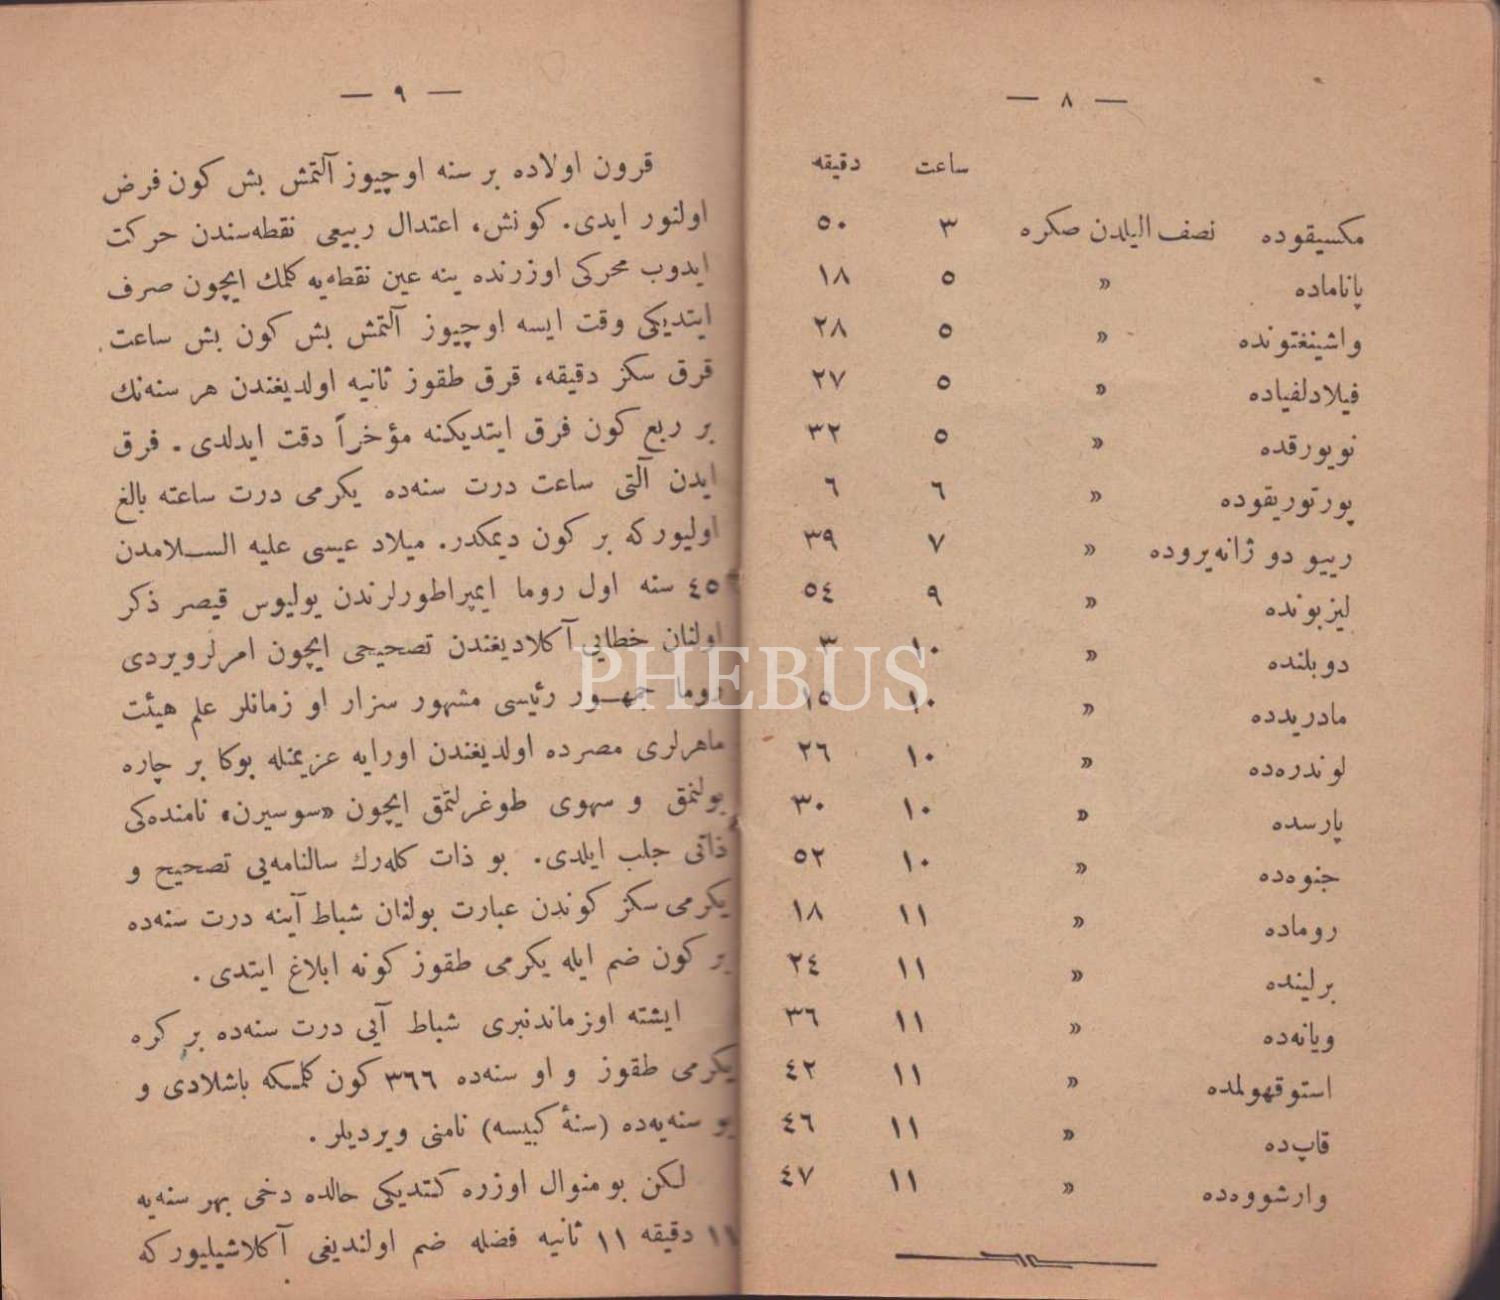 — ٨ —
ساعت دقيقه
مكسيقوده نصف اليلدن صكره ٣ ٥٠
پاناماده » ٥ ١٨
واشينغتونده » ٥ ٢٨
فيلادلفياده » ٥ ٢٧
نويورقده » ٥ ٣٢
پورتوريقوده » ٦ ٦
رييو دو ژانه‌يروده » ٧ ٣٩
ليزبونده » ٩ ٥٤
دوبلنده » ١٠ ٣
مادريدده » ١٠ ١٥
لوندره‌ده » ١٠ ٢٦
پارسده » ١٠ ٣٠
جنوه‌ده » ١٠ ٥٢
روماده » ١١ ١٨
برلينده » ١١ ٢٤
ويانه‌ده » ١١ ٣٦
استوقهولمده » ١١ ٤٢
قاپ‌ده » ١١ ٤٦
وارشووه‌ده » ١١ ٤٧
— ٩ —
قرون اولاده بر سنه اوچيوز آلتمش بش كون فرض
اولنور ايدى. كونش، اعتدال ربيعى نقطه‌سندن حركت
ايدوب محركى اوزرنده ينه عين نقطه‌يه كلمك ايچون صرف
ايتديكى وقت ايسه اوچيوز آلتمش بش كون بش ساعت
قرق سكز دقيقه، قرق طقوز ثانيه اولديغندن هر سنه‌نك
بر ربع كون فرق ايتديكنه مؤخراً دقت ايدلدى. فرق
ايدن آلتى ساعت درت سنه‌ده يكرمى درت ساعته بالغ
اوليوركه بر كون ديمكدر. ميلاد عيسى عليه السلامدن
٤٥ سنه اول روما ايمپراطورلرندن يوليوس قيصر ذكر
اولنان خطايى آكلاديغندن تصحيحى ايچون امرلرويردى
روما جمهور رئيسى مشهور سزار او زمانلر علم هيئت
ماهرلرى مصرده اولديغندن اورايه عزيمتله بوكا بر چاره
بولنمق و سهوى طوغرلتمق ايچون «سوسيرن» نامنده‌كى
ذاتى جلب ايلدى. بو ذات كله‌رك سالنامه‌يى تصحيح و
يكرمى سكز كوندن عبارت بولنان شباط آينه درت سنه‌ده
بر كون ضم ايله يكرمى طقوز كونه ابلاغ ايتدى.
ايشته اوزماندنبرى شباط آيى درت سنه‌ده بر كره
يكرمى طقوز و او سنه‌ده ٣٦٦ كون كلمكه باشلادى و
بو سنه‌يه‌ده (سنهٔ كبيسه) نامنى ويرديلر.
لكن بو منوال اوزره كتديكى حالده دخى بهر سنه‌يه
١١ دقيقه ١١ ثانيه فضله ضم اولنديغى آكلاشيليوركه
PHEBUS